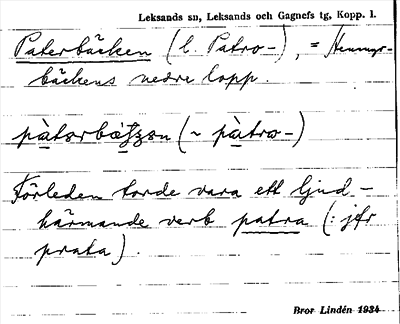 Leksands sn, Leksands och Gagnefs tg, Kopp. l.
Paterbäcken (l. Patro-), = Hemmyr-
bäckens nedre lopp.
(~ pàtro-)
Förleden torde vara ett ljud-
härmande verb patra (: jfr
prata).
Bror Lindén 1934